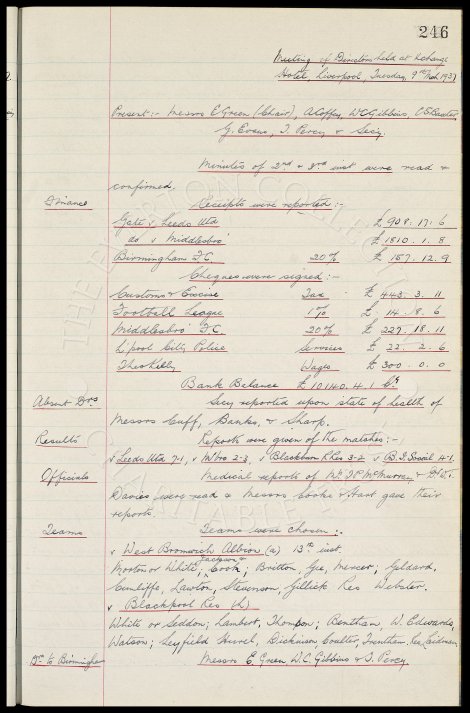 246
Meeting of Directors held at Exchange
Hotel, Liverpool, Tuesday, 9th Mch 1937
Present:- Messrs E Green (Chair), A Coffey, W C Gibbins, C E Baxter,
G. Evans, T. Percy & Secy.
Minutes of 2nd & 3rd inst were read &
confirmed.
Finance
Receipts were reported:-
Gate v Leeds Utd £ 908. 17. 6
do v Middlesbro' £ 1810. 1. 8
Birmingham F.C. 20% £ 157. 12. 9
Cheques were signed:-
Customs & Excise Tax £ 443. 3. 11
Football League 1% £ 14. 18. 6
Middlesbro' F.C. 20% £ 227. 18. 11
L'pool City Police Services £ 22. 2. 6
Theo Kelly Wages £ 300. 0. 0
Bank Balance £ 10140. 4. 1 Cr
Absent Drs
Secy reported upon state of health of
Messrs Cuff, Banks, & Sharp.
Results
Reports were given of the matches:-
v Leeds Utd 7-1, v M'bro 2-3, v Blackburn R Res 3-2 v B. I. Social 4-1.
Officials
Medical reports of Mr J P McMurray & D. W. J.
Davies were read & Messrs Cooke & Hart gave their
reports.
Teams
Teams were chosen:-
v West Bromwich Albion (a) 13th inst.
Morton or White; Jackson & Cook; Britton, Gee, Mercer; Geldard,
Cunliffe, Lawton, Stevenson, Gillick Res Webster.
v Blackpool Res (h)
White or Seddon; Lambert, Thomson; Bentham, W. Edwards,
Watson; Leyfield Hurel, Dickinson, Coulter, Trentham, Res
Drs to Birmingham
Messrs E. Green, W. C. Gibbins & T. Percy
THE EVERTON COLLECTION
CHARITABLE